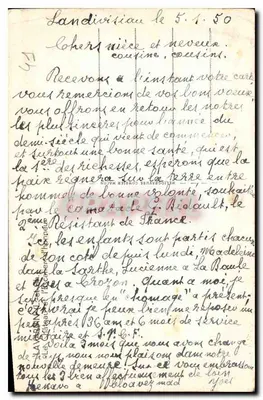 Landivisiau le 5.1.50
Chers nièce et neveux
cousine, cousins.
Recevons à l'instant votre carte
vous remercions de vos bons vœux
vous offrons en retour les notres
les plus sincères pour l'année du
demi siècle qui vient de commencer
et surtout une bonne santé, qui est
la 1ère des richesses espérons que la
paix règnera sur la terre entre
hommes de bonne volonté, souhait
par le camarade Ridault, le
2ème Résistant de France.
Ici, les enfants sont partis chacun
de son coté depuis lundi, Madeleine
dans la Sarthe, Lucienne à La Baule
et à Crozon. Quant à moi, je
suis presque en "chomage" à présent
c'est vrai je peux bien me reposer un
peu après 36 ans et 6 mois de service
militaire et S.N.C.F.
Voila 3 mois que vous avons changé de
nous nous plaisons dans notre
nouvelle demeure. Sur ce vous embrassons
tous les 3 bien affectueusement de loin
Kenavo a bloavez mad